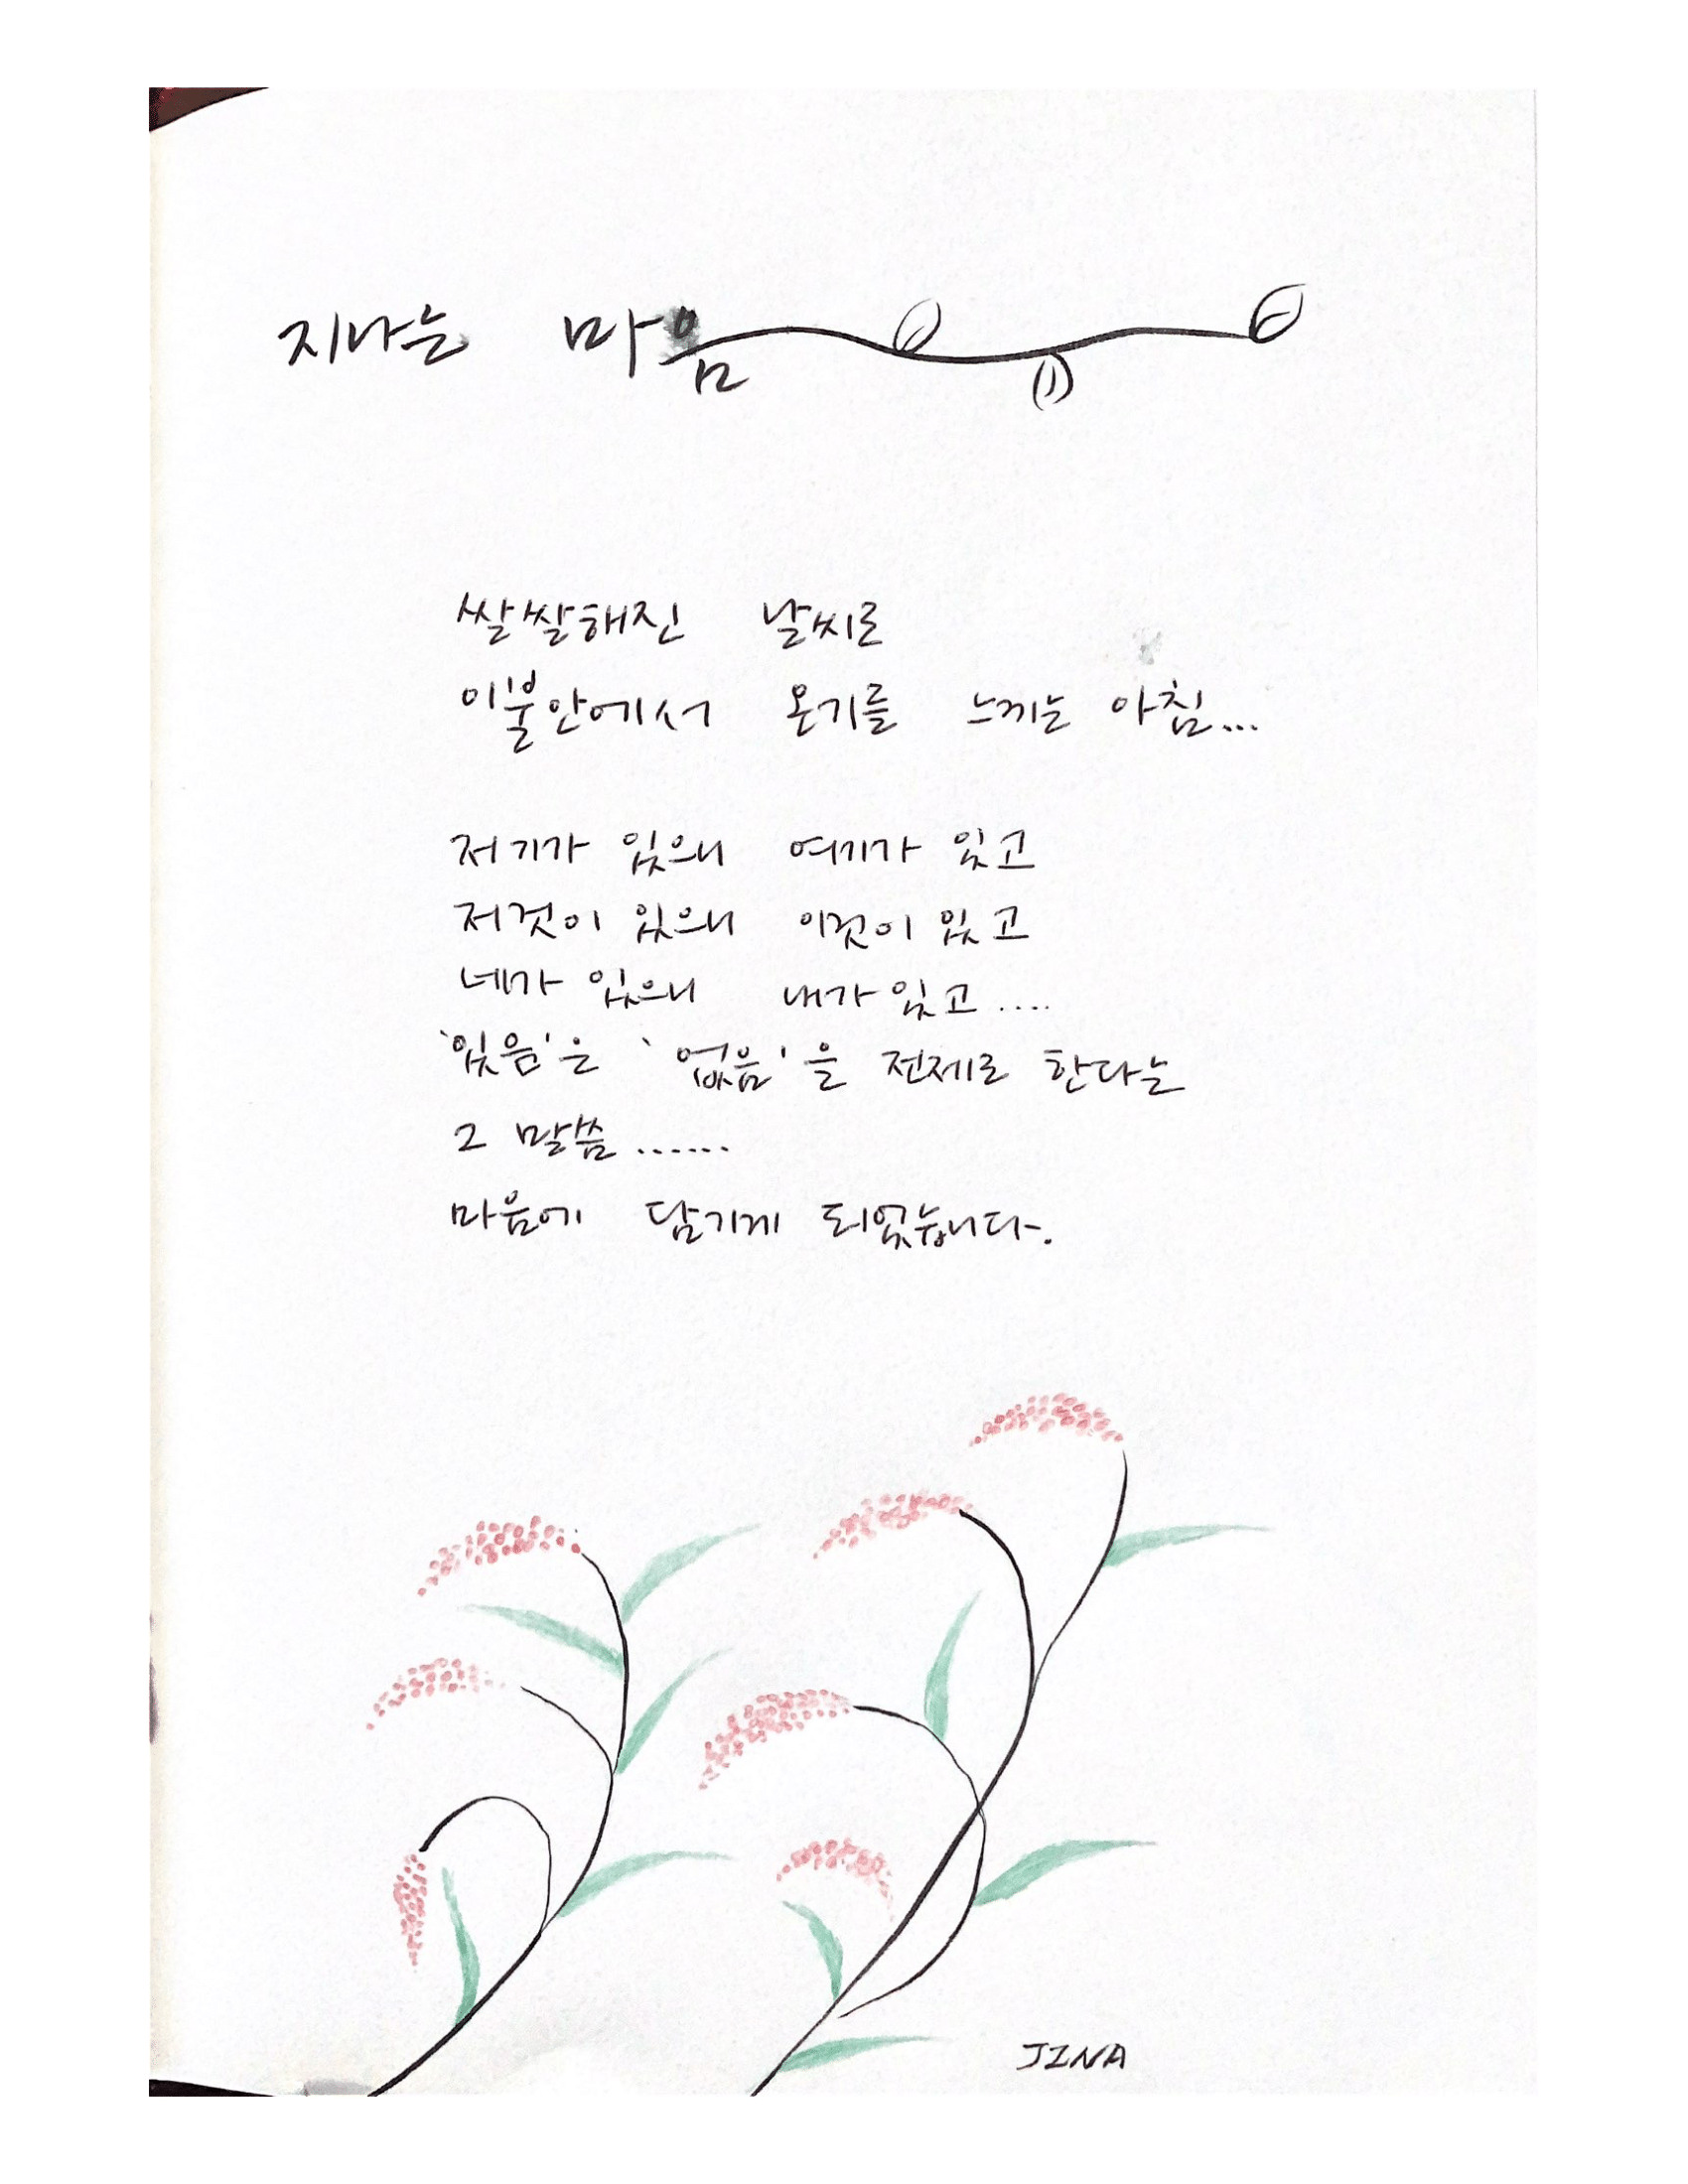 지나는 마음
쌀쌀해진 날씨로
이불안에서 온기를 느끼는 아침...
저기가 있으니 여기가 있고
저것이 있으니 이것이 있고
네가 있으니 내가 있고....
'있음'은 '없음'을 전제로 한다는
그 말씀......
마음에 담기게 되었습니다.
JINA